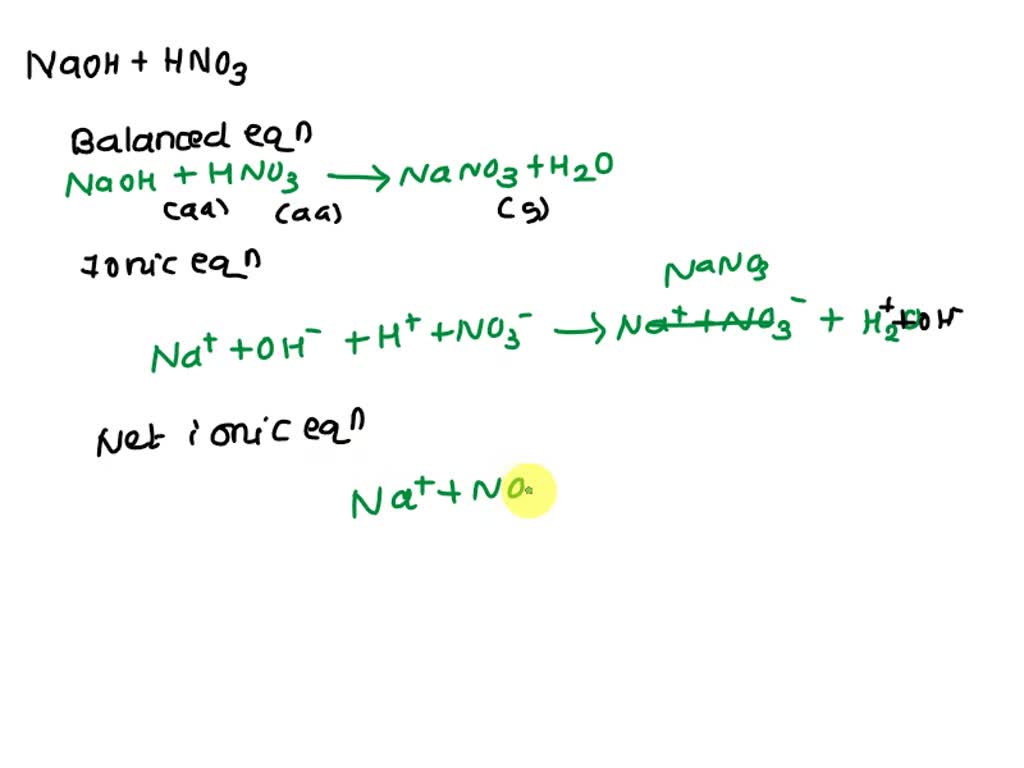 NaOH + HNO3
Balanced eqn
NaOH + HNO3 → NaNO3 + H2O
(aq) (aq) (s)
Ionic eqn
NaNO3
Na+ + OH- + H+ + NO3- → Na+ + NO3- + H+ + OH-
Net ionic eqn
Na+ + NO